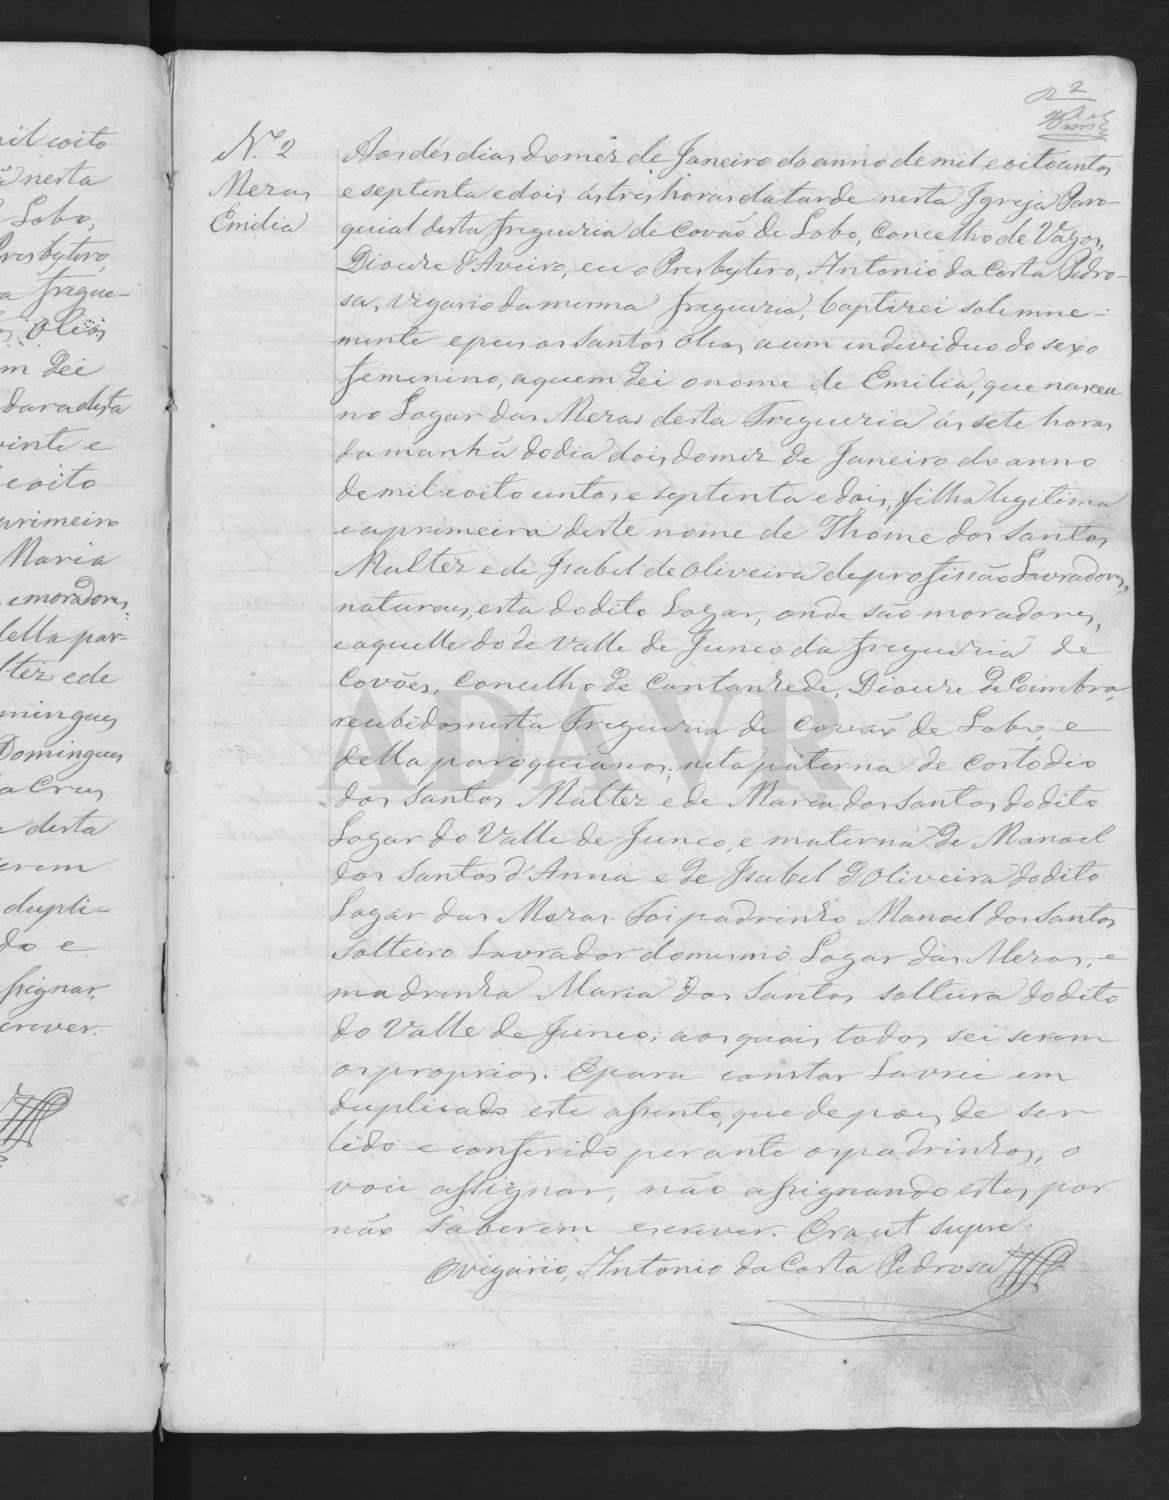 2
il coito
a nesta
Lobo,
Presbytero,
a fregue-
Olios
m dei
dara desta
vinte e
coito
primeiro
Maria
e moradores
della par-
ltez e de
mingues
Domingues
a Cruz
desta
erem
dupli-
do e
ssignar,
crever.
N.º 2
Mezas
Emilia
Aos dés dias do mez de Janeiro do anno de mil e oitocentos
e septenta e dois ás tres horas da tarde nesta Igreja Paro-
quial desta freguezia de Covão de Lobo, Concelho de Vagos,
Diocese d'Aveiro, eu o Presbytero, Antonio da Costa Pedro-
sa, Vigario da mesma freguezia, baptizei solemne-
mente e pus os santos Oleos a um individuo do sexo
femenino, a quem dei o nome de Emilia, que nasceu
no Logar das Mezas desta Freguezia ás sete horas
da manhã do dia dois do mez de Janeiro do anno
de mil e oitocentos e septenta e dois, filha legitima
e a primeira deste nome de Thome dos Santos
Maltez e de Isabel de Oliveira de profissão Lavradores,
naturaes, esta do dito Logar, onde são moradores,
e aquelle do de Valle de Junco da freguezia de
Covões, Concelho de Cantanhede, Diocese de Coimbra,
recebidos nesta Freguezia de Covão de Lobo, e
della paroquianos; neta paterna de Costodio
dos Santos Maltez e de Maria dos Santos do dito
Logar do Valle de Junco, e materna de Manoel
dos Santos d'Anna e de Isabel d'Oliveira do dito
Logar das Mezas. Foi padrinho Manoel dos Santos
solteiro Lavrador do mesmo Logar das Mezas, e
madrinha Maria dos Santos solteira do dito
do Valle de Junco; aos quais todos sei serem
os proprios. E para constar Lavrei em
duplicado este assento, que depois de ser
lido e conferido perante os padrinhos, o
vou assignar, não assignando estes por
não saberem escrever. Era ut supra.
O vigario, Antonio da Costa Pedrosa
ADAVR